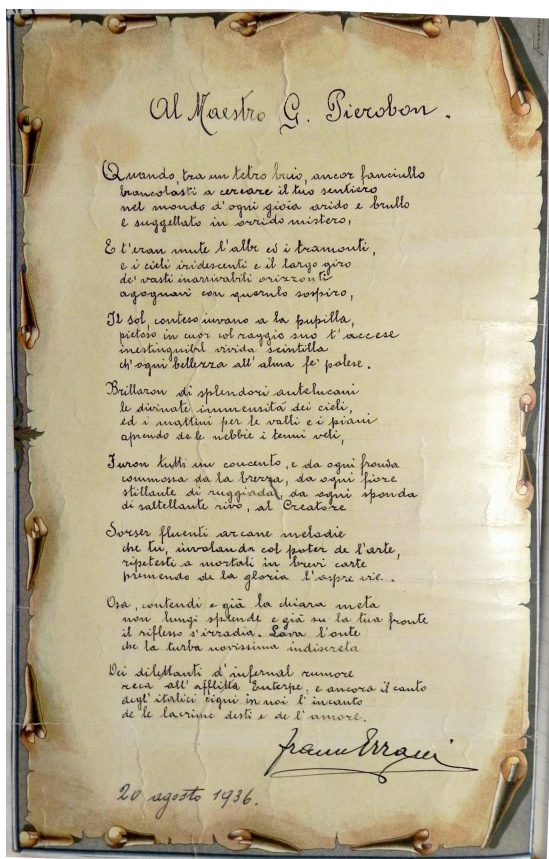 Al Maestro G. Pierobon.
Quando, tra un tetro buio, ancor fanciullo
brancolasti a cercare il tuo sentiero
nel mondo d'ogni gioia arido e brullo
e suggellato in orrido mistero,
E t'eran mute l'albe ed i tramonti,
e i cieli iridescenti e il largo giro
de' vasti inarrivabili orizzonti
agognavi con querulo sospiro,
Il sol, conteso invano a la pupilla,
pietoso in cuor col raggio suo t'accese
inestinguibil vivida scintilla
ch'ogni bellezza all'alma fe' palese.
Brillaron di splendori antelucani
le divinate immensità dei cieli,
ed i mattini per le valli e i piani
aprendo de le nebbie i tenui veli,
Furon tutti un concento, e da ogni fronda
commossa da la brezza, da ogni fiore
stillante di ruggiada, da ogni sponda
di saltellante rivo, al Creatore
Sorser fluenti arcane melodie
che tu, involando col poter de l'arte,
ripetesti a mortali in brevi carte
premendo de la gloria l'aspre vie.
Osa, contendi e già la chiara meta
non lungi splende e già su la tua fronte
il riflesso s'irradia. Lava l'onte
che la turba novissima indiscreta
Dei dilettanti d'infernal rumore
reca all'afflitta Euterpe, e ancora il canto
degl'italici cigni in noi l'incanto
de le lacrime desti e de l'amore.
20 agosto 1936.